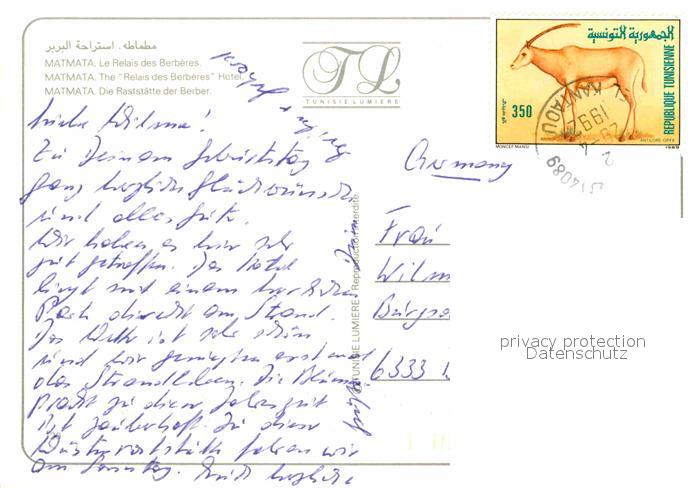 مطماطه. استراحة البربر
MATMATA. Le Relais des Berbères.
MATMATA. The "Relais des Berbères" Hotel.
MATMATA. Die Raststätte der Berber.
TL
TUNISIE LUMIERE
الجمهورية التونسية
350
REPUBLIQUE TUNISIENNE
MONCEF MANSI
ANTILOPE ORYX
1989
KANTAOUI
1992
514089
Liebe Wilma!
Zu Deinem Geburtstag
ganz herzliche Glückwünsche
und alles Gute.
Wir haben es hier sehr
gut getroffen. Das Hotel
liegt mit einem herrlichen
Park direkt am Strand.
Das Wetter ist sehr schön
und wir genießen erstmal
das Strandleben. Die Blumen
pracht zu dieser Jahreszeit
ist zauberhaft. Zu dieser
Wüstenraststätte fahren wir
am Sonntag. Seid herzlichst
© TUNISIE LUMIERE - Reproduction interdite.
Germany
Frau
Wilm
Burgso
6333
privacy protection
Datenschutz